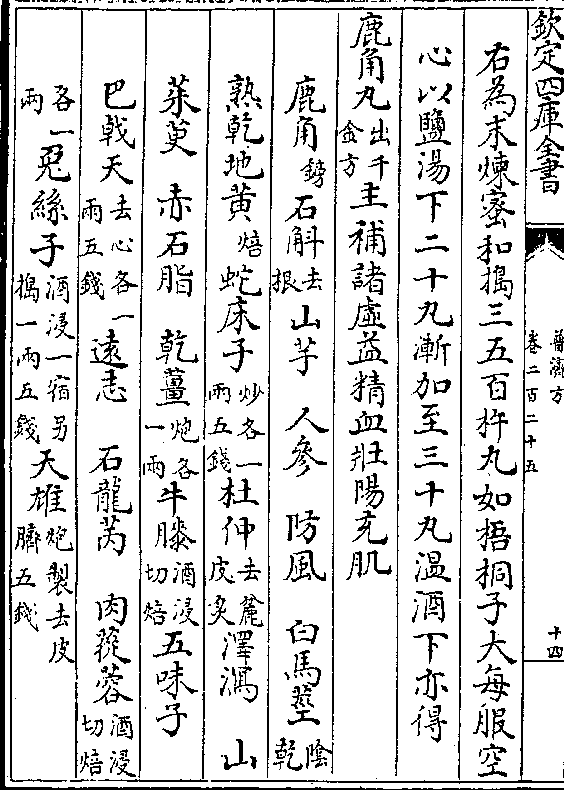 欽定四庫全書
普濟方
卷二百二十五
十四
右為末煉蜜和搗三五百杵丸如梧桐子大每服空
心以鹽湯下二十丸漸加至三十丸溫酒下亦得
鹿角丸出千金方主補諸虛益精血壯陽充肌
鹿角鎊石斛去根山芋 人參 防風 白馬莖陰乾
熟乾地黃焙蛇床子炒各一兩五錢杜仲去麄皮炙澤瀉 山
茱萸 赤石脂 乾薑炮各一兩牛膝酒浸切焙五味子
巴戟天去心各一兩五錢遠志 石龍芮 肉蓯蓉酒浸切焙
各一兩兎絲子酒浸一宿另搗一兩五錢天雄炮製去皮臍五錢